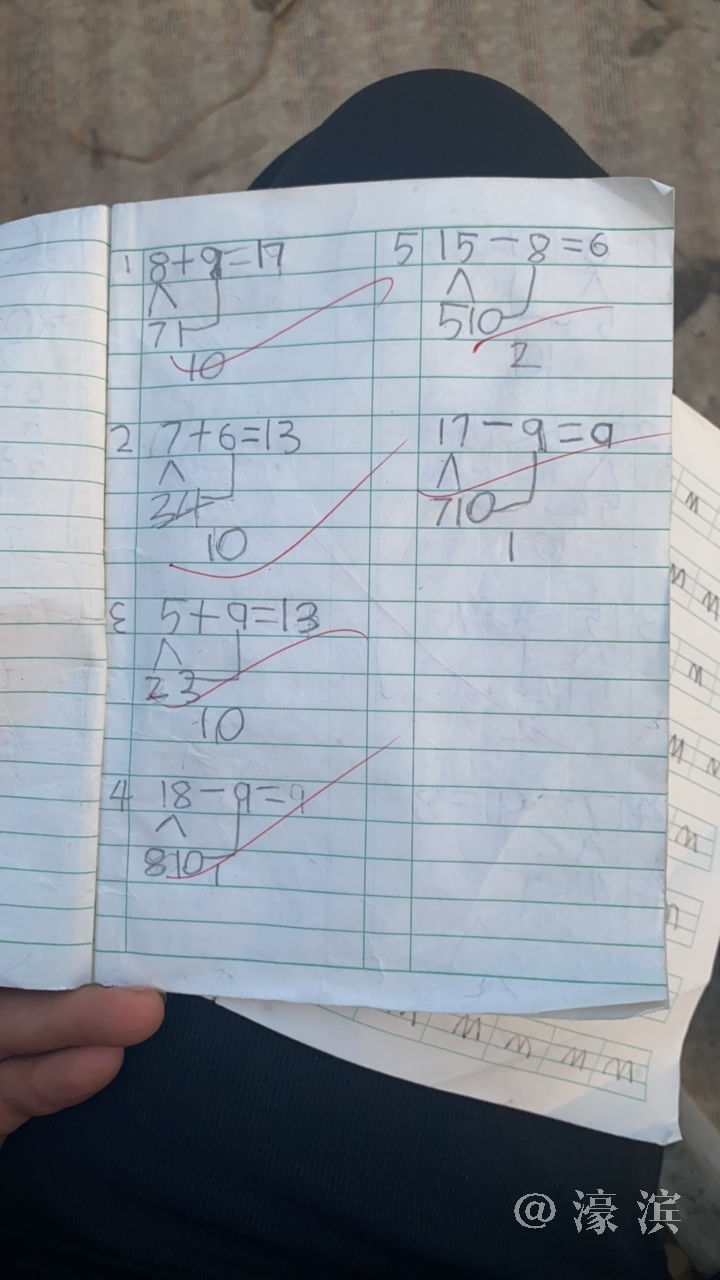 1 8+9=17
71
10
2 7+6=13
34
10
3 5+9=13
23
10
4 18-9=9
810
1
5 15-8=6
510
2
17-9=9
710
1
w
w
w
w
w w w w
@濠滨